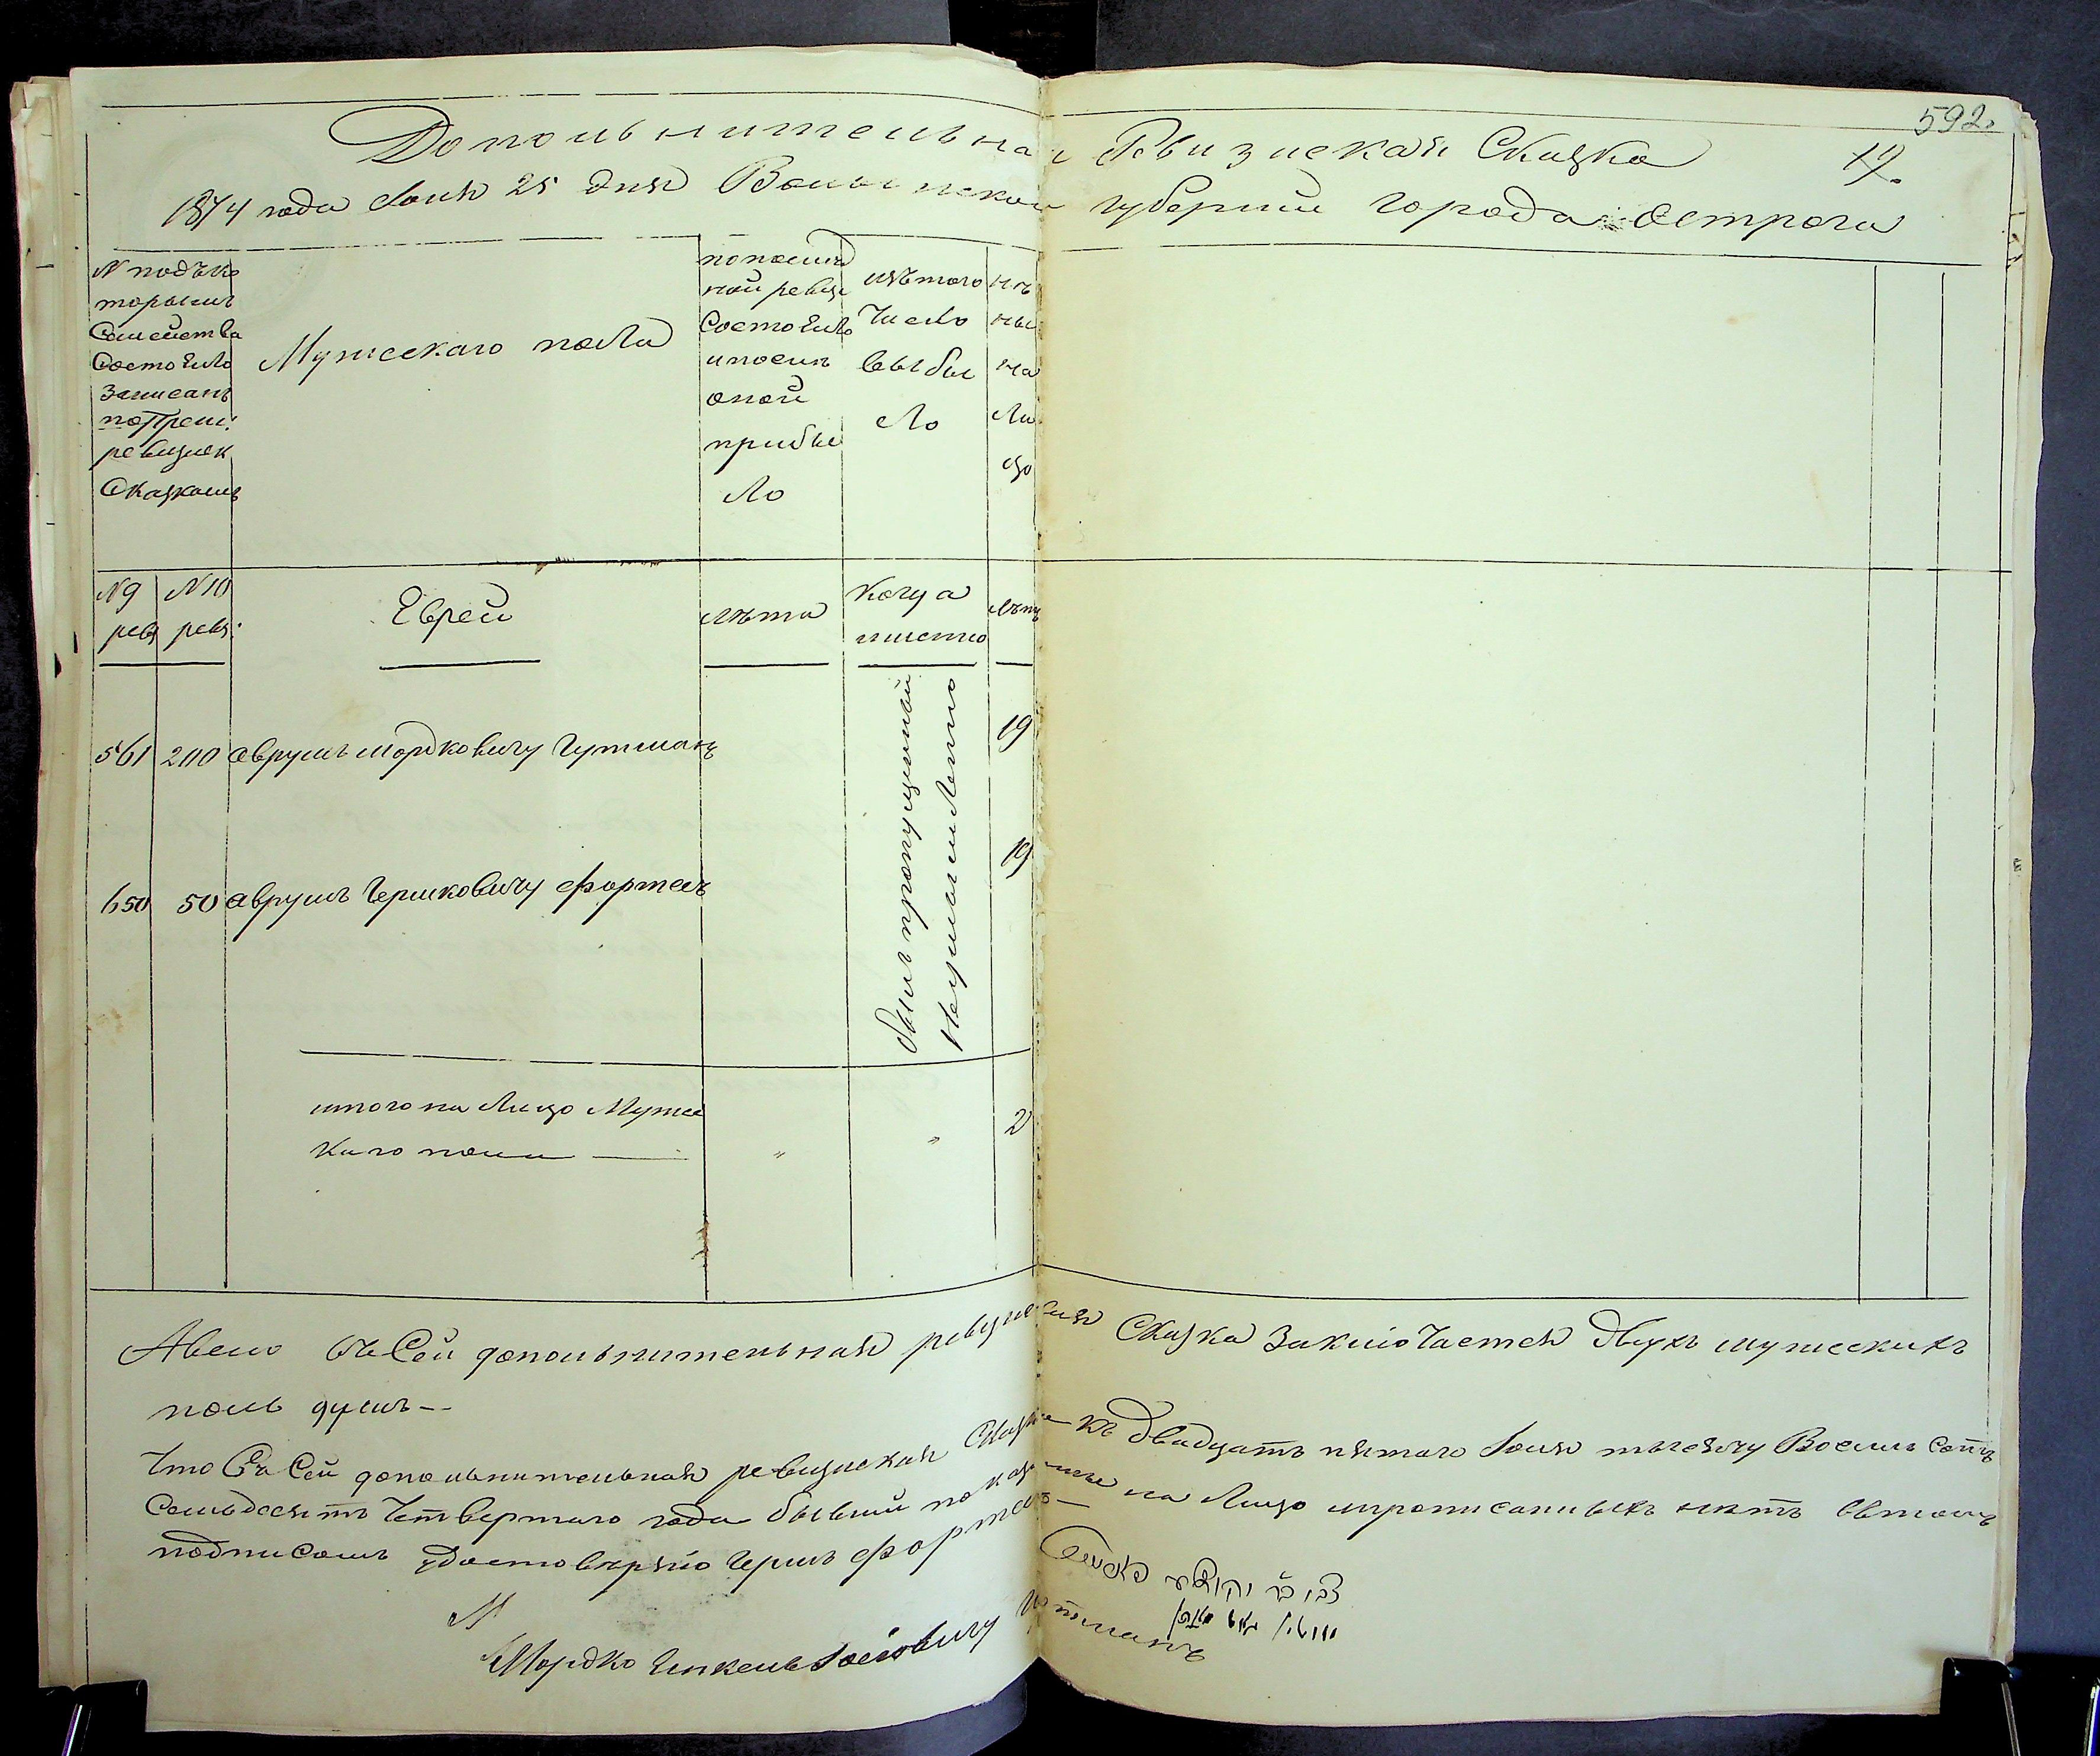 592.
Допольнительная Ревизская Скаска
19.
1874 года Юля 25 дня Волынской губернии города Острога
№ подъко
торымъ
Семейства
Состояло
Записанъ
попреж:
ревизск
Сказкомъ
Мужескаго пола
попослед
ной ревизи
Состояло
ипослѣ
оной
прибы
ло
изътого
Число
выбы
ло
нѣ
ны
на
ли
цо
№ 9 ревз
№ 10 ревз:
Евреи
лѣта
Когда
имѣнно
лѣтъ
561 200 Аврумъ Мордковичу Гутманъ 19
650 50 Аврумъ Гершковичу Фортель 19
былъ пропущиный
Неумышленно
итого на Лицо Муже
каго пола — " " 2
Авсего въ Сей дополнительная ревизская Сказка Заключается двухъ мужескихъ
полъ душъ --
Что Въ Сей дополнительная ревизская Сказка къ двадцать пятаго Юля тысячу Восемь Сотъ
Семьдесятъ Четвертаго года бывший показ на Лицо ипрописаныхъ нѣтъ Вътомъ
подписомъ удостовѣряю Гершъ Фортель —
М
Мордко Янкель Йосѣовичу Гутманъ